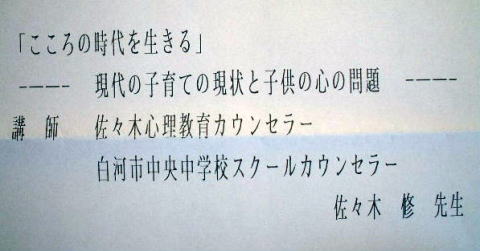 「こころの時代を生きる」
----- 現代の子育ての現状と子供の心の問題 -----
講 師 佐々木心理教育カウンセラー
白河市中央中学校スクールカウンセラー
佐々木 修 先生